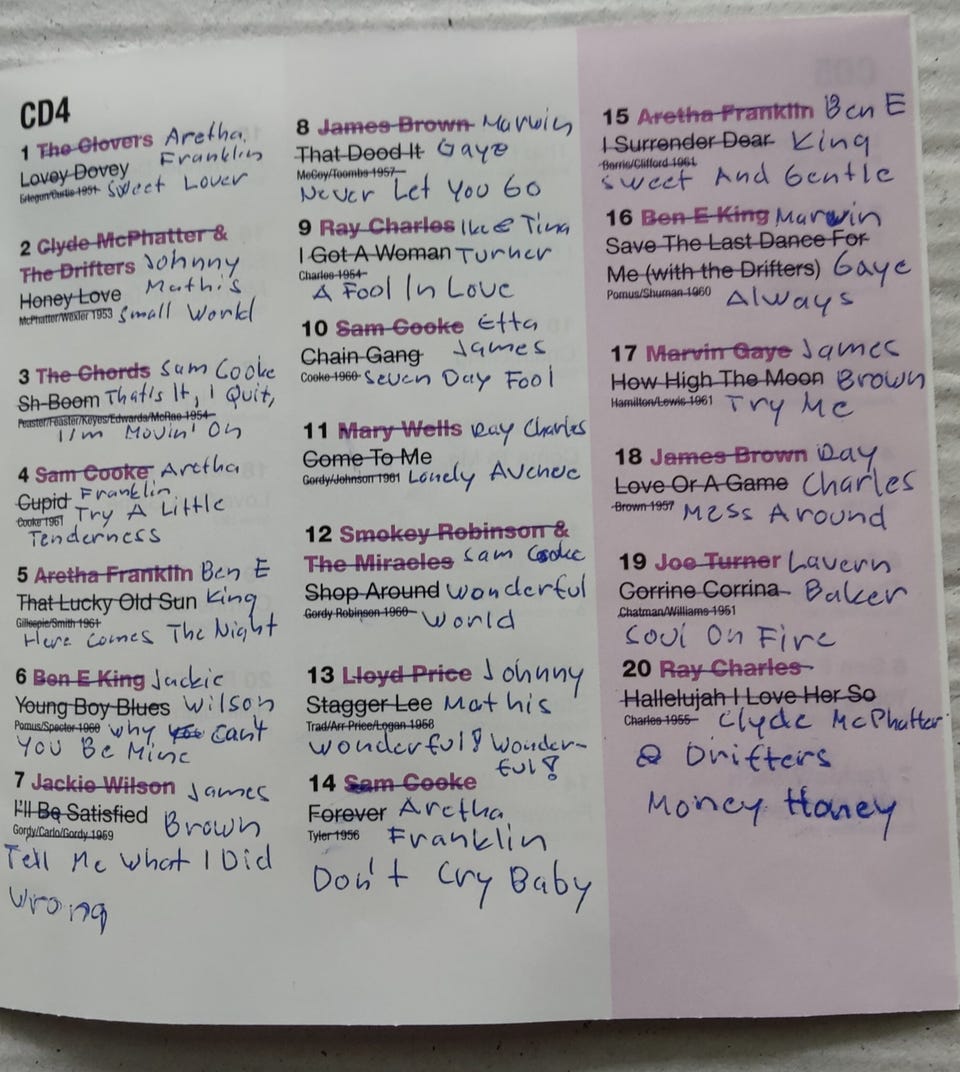 CD4
1 The Clovers Aretha
Lovey Dovey Franklin
Ertegun/Curtis 1951 Sweet Lover
2 Clyde McPhatter &
The Drifters Johnny
Honey Love Mathis
McPhatter/Wexler 1953 Small World
3 The Chords Sam Cooke
Sh-Boom That's It, I Quit,
Feaster/Feaster/Keyes/Edwards/McRae 1954
I'm Movin' On
4 Sam Cooke Aretha
Cupid Franklin
Cooke 1961 Try A Little
Tenderness
5 Aretha Franklin Ben E
That Lucky Old Sun King
Gillespie/Smith 1961
Here Comes The Night
6 Ben E King Jackie
Young Boy Blues Wilson
Pomus/Spector 1960 Why Can't
You Be Mine
7 Jackie Wilson James
I'll Be Satisfied Brown
Gordy/Carlo/Gordy 1959
Tell Me What I Did
Wrong
8 James Brown Marwin
That Dood It Gaye
McCoy/Toombs 1957
Never Let You Go
9 Ray Charles Ike & Tina
I Got A Woman Turner
Charles 1954
A Fool In Love
10 Sam Cooke Etta
Chain Gang James
Cooke 1960 Seven Day Fool
11 Mary Wells Ray Charles
Come To Me
Gordy/Johnson 1961 Lonely Avenue
12 Smokey Robinson &
The Miracles Sam Cooke
Shop Around Wonderful
Gordy Robinson 1960 World
13 Lloyd Price Johnny
Stagger Lee Mathis
Trad/Arr Price/Logan 1958
Wonderful! Wonder-
ful!
14 Sam Cooke
Forever Aretha
Tyler 1956 Franklin
Don't Cry Baby
15 Aretha Franklin Ben E
I Surrender Dear King
Barris/Clifford 1961
Sweet And Gentle
16 Ben E King Marwin
Save The Last Dance For
Me (with the Drifters) Gaye
Pomus/Shuman 1960 Always
17 Marvin Gaye James
How High The Moon Brown
Hamilton/Lewis 1961 Try Me
18 James Brown Ray
Love Or A Game Charles
Brown 1957 Mess Around
19 Joe Turner Lavern
Corrine Corrina Baker
Chatman/Williams 1951
Soul On Fire
20 Ray Charles
Hallelujah I Love Her So
Charles 1955 Clyde McPhatter
& Drifters
Money Honey